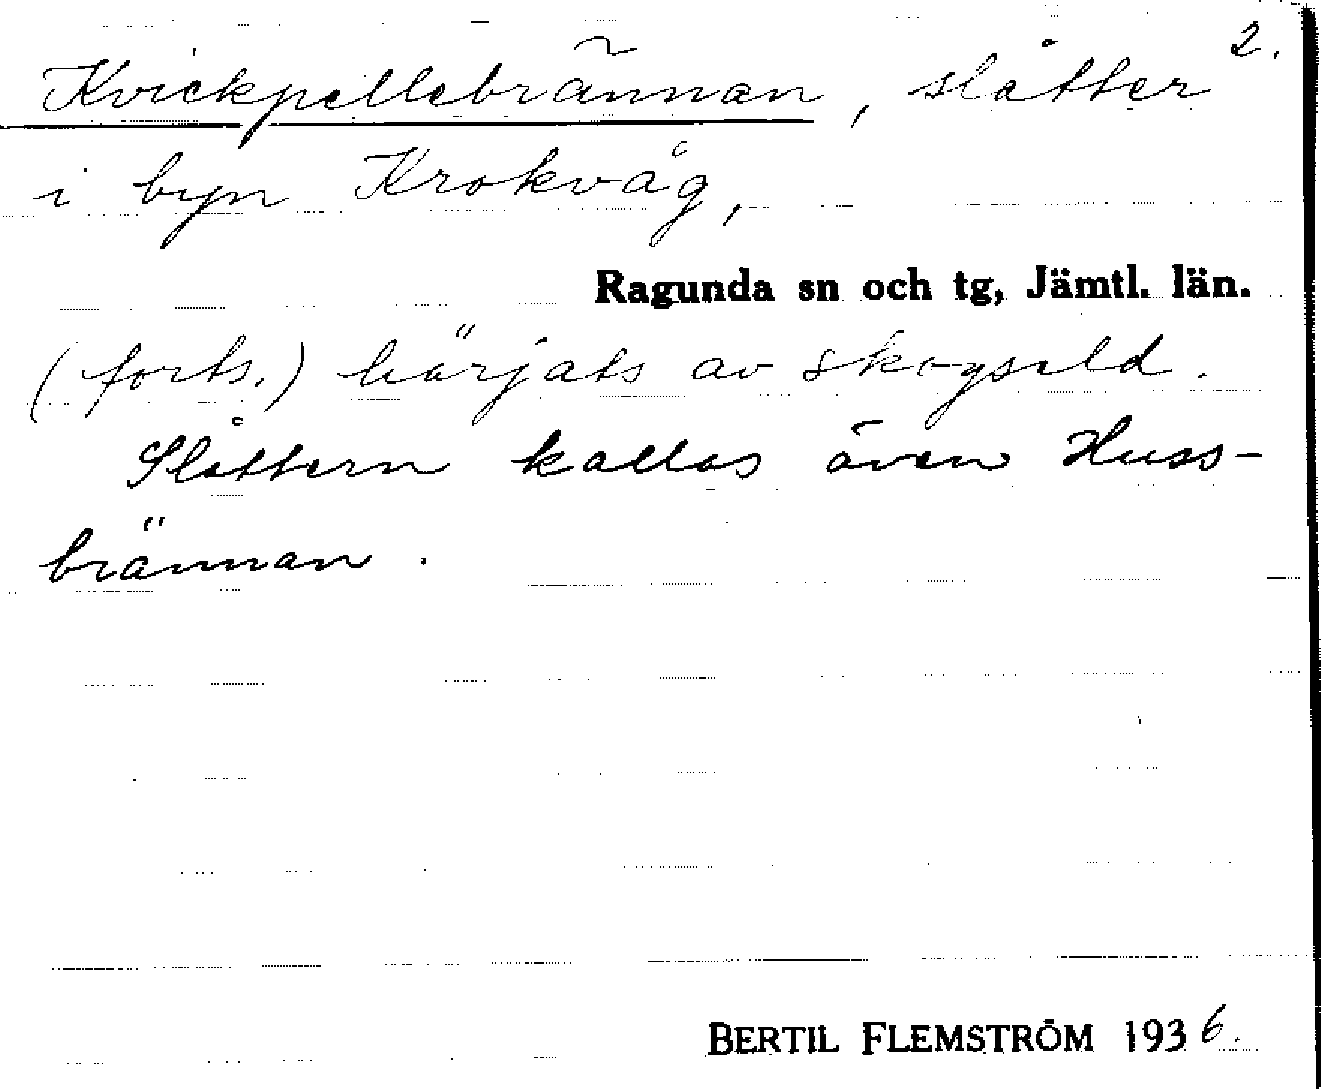 Kvickpellebrännan, slåtter 2.
i byn Krokvåg,
Ragunda sn och tg, Jämtl. län.
(forts.) härjats av skogseld.
Slåttern kallas även Huss-
brännan.
BERTIL FLEMSTRÖM 1936.